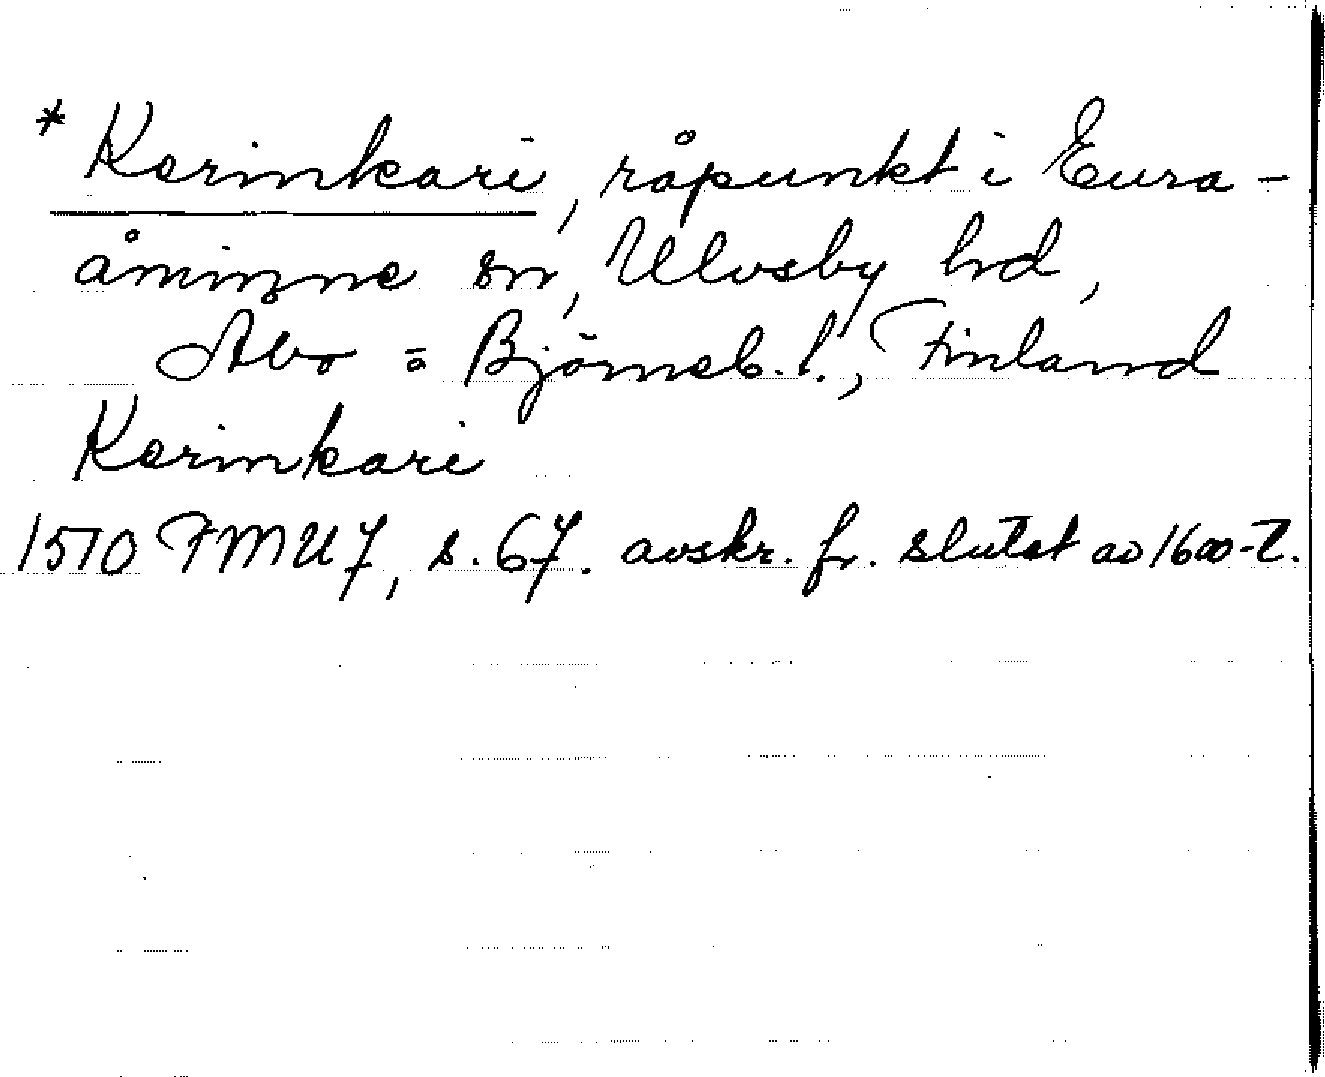 * Kerinkari, råpunkt i Eura-
åminne sn, Ulvsby hd,
Åbo o Björneb. l., Finland
Kerinkari
1510 FMU 7, s. 67. avskr. fr. slutet av 1600-t.